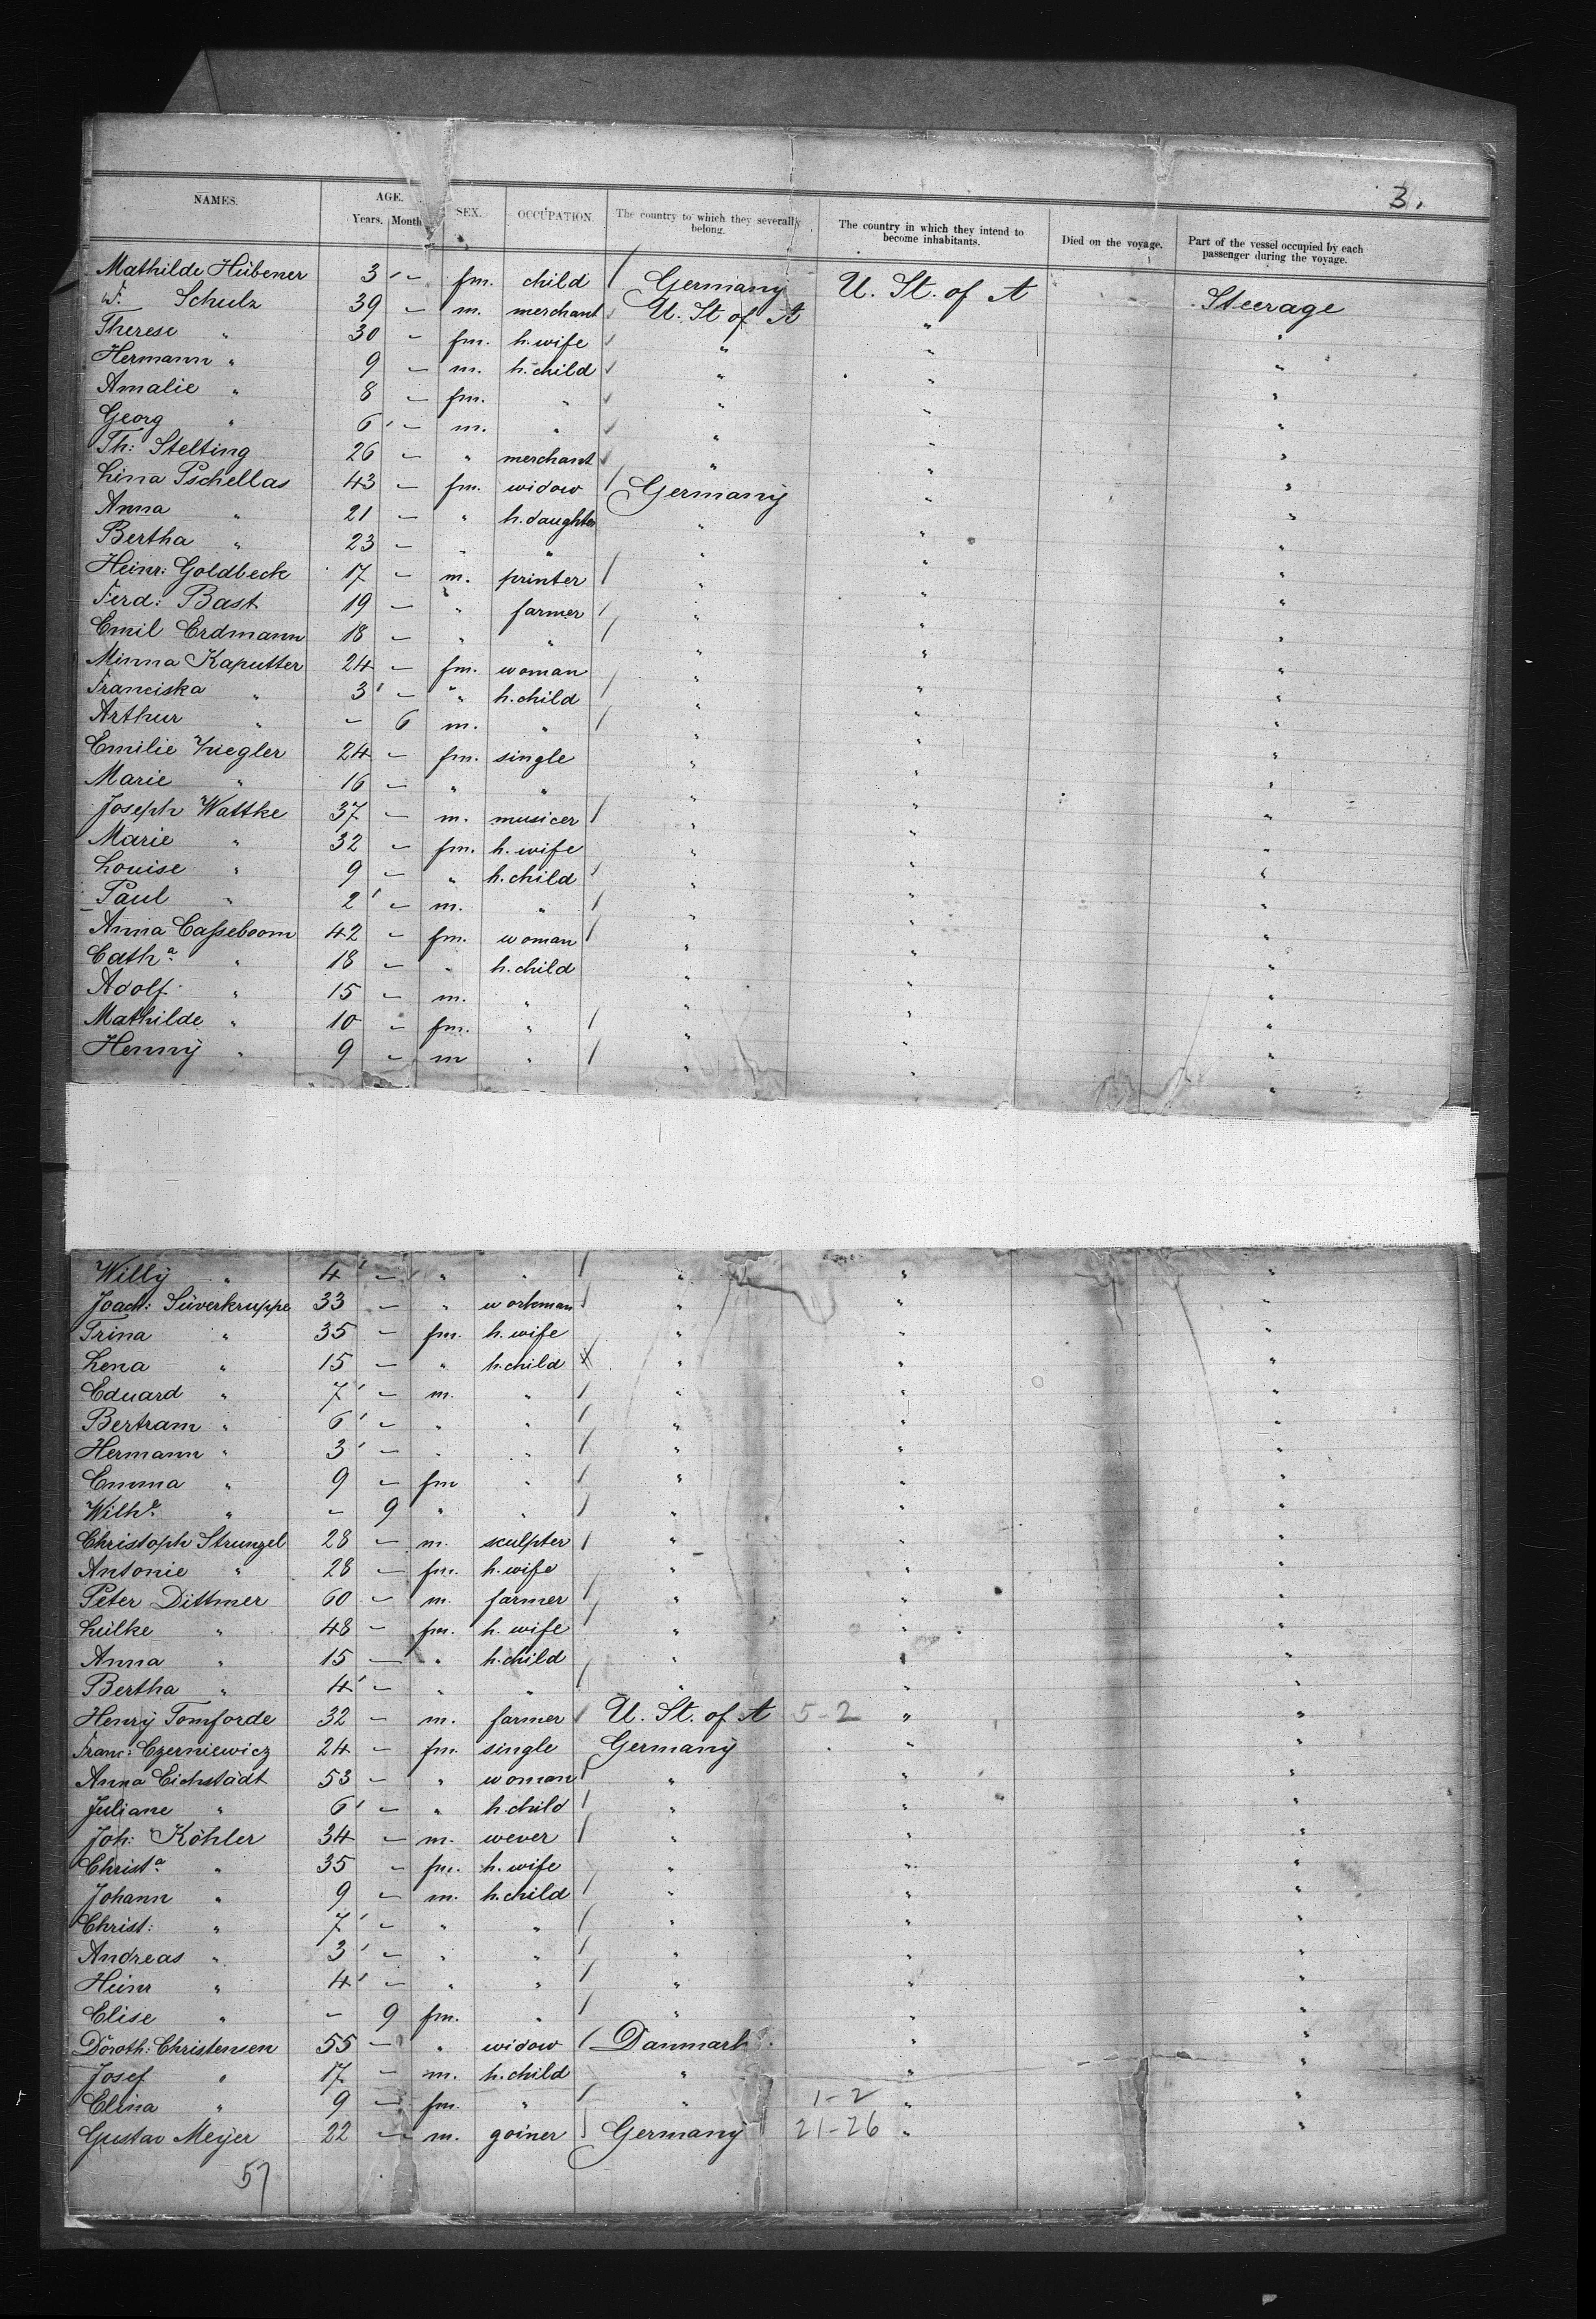 3.
NAMES. AGE. Years. Month SEX. OCCUPATION. The country to which they severally belong. The country in which they intend to become inhabitants. Died on the voyage. Part of the vessel occupied by each passenger during the voyage.
Mathilde Hübener 3 - fm. child Germany U. St. of A Steerage
W. Schulz 39 - m. merchant U. St of A " "
Therese " 30 - fm. h. wife " " "
Hermann " 9 - m. h. child " " "
Amalie " 8 - fm. " " " "
Georg " 6 - m. " " " "
Th: Stelting 26 - " merchant " " "
Lina Pschellas 43 - fm. widow Germany " "
Anna " 21 - " h. daughter " " "
Bertha " 23 - " " " " "
Heinr: Goldbeck 17 - m. printer " " "
Ferd: Bast 19 - " farmer " " "
Emil Erdmann 18 - " " " " "
Minna Kaputter 24 - fm. woman " " "
Franciska " 3 - " h. child " " "
Arthur " - 6 m. " " " "
Emilie Ziegler 24 - fm. single " " "
Marie " 16 - " " " " "
Joseph Wattke 37 - m. musicer " " "
Marie " 32 - fm. h. wife " " "
Louise " 9 - " h. child " " "
Paul " 2 - m. " " " "
Anna Casseboom 42 - fm. woman " " "
Catha " 18 - " h. child " " "
Adolf " 15 - m. " " " "
Mathilde " 10 - fm. " " " "
Henny " 9 - m " " " "
Willy " 4 - " " " " "
Joach: Süverkruppe 33 - " workman " " "
Trina " 35 - fm. h. wife " " "
Lena " 15 - " h. child " " "
Eduard " 7 - m. " " " "
Bertram " 6 - " " " " "
Hermann " 3 - " " " " "
Emma " 9 - fm " " " "
Wilhe " - 9 " " " " "
Christoph Strunzel 28 - m. sculpter " " "
Antonie " 28 - fm. h. wife " " "
Peter Dittmer 60 - m. farmer " " "
Lülke " 48 - fm. h. wife " " "
Anna " 15 - " h. child " " "
Bertha " 4 - " " " " "
Henry Tomforde 32 - m. farmer U. St. of A 5-2 " "
Franc: Czerniewicz 24 - fm. single Germany " "
Anna Eichstädt 53 - " woman " " "
Juliane " 6 - " h. child " " "
Joh: Köhler 34 - m. wever " " "
Christa " 35 - fm. h. wife " " "
Johann " 9 - m. h. child " " "
Christ: " 7 - " " " " "
Andreas " 3 - " " " " "
Heinr " 4 - " " " " "
Elise " - 9 fm. " " " "
Doroth: Christensen 55 - " widow Danmark " "
Josef " 17 - m. h. child " " "
Elina " 9 - fm. " " 1-2 " "
Gustav Meyer 22 - m. goiner Germany 21-26 " "
57